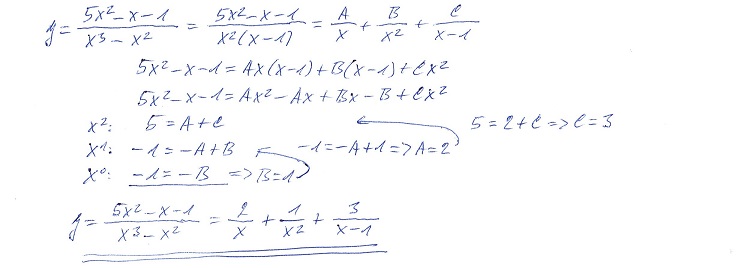 y = (5x² - x - 1)/(x³ - x²) = (5x² - x - 1)/(x²(x - 1)) = A/x + B/x² + C/(x - 1)
5x² - x - 1 = Ax(x - 1) + B(x - 1) + Cx²
5x² - x - 1 = Ax² - Ax + Bx - B + Cx²
x²: 5 = A + C 5 = 2 + C => C = 3
x¹: -1 = -A + B -1 = -A + 1 => A = 2
x⁰: -1 = -B => B = 1
y = (5x² - x - 1)/(x³ - x²) = 2/x + 1/x² + 3/(x - 1)